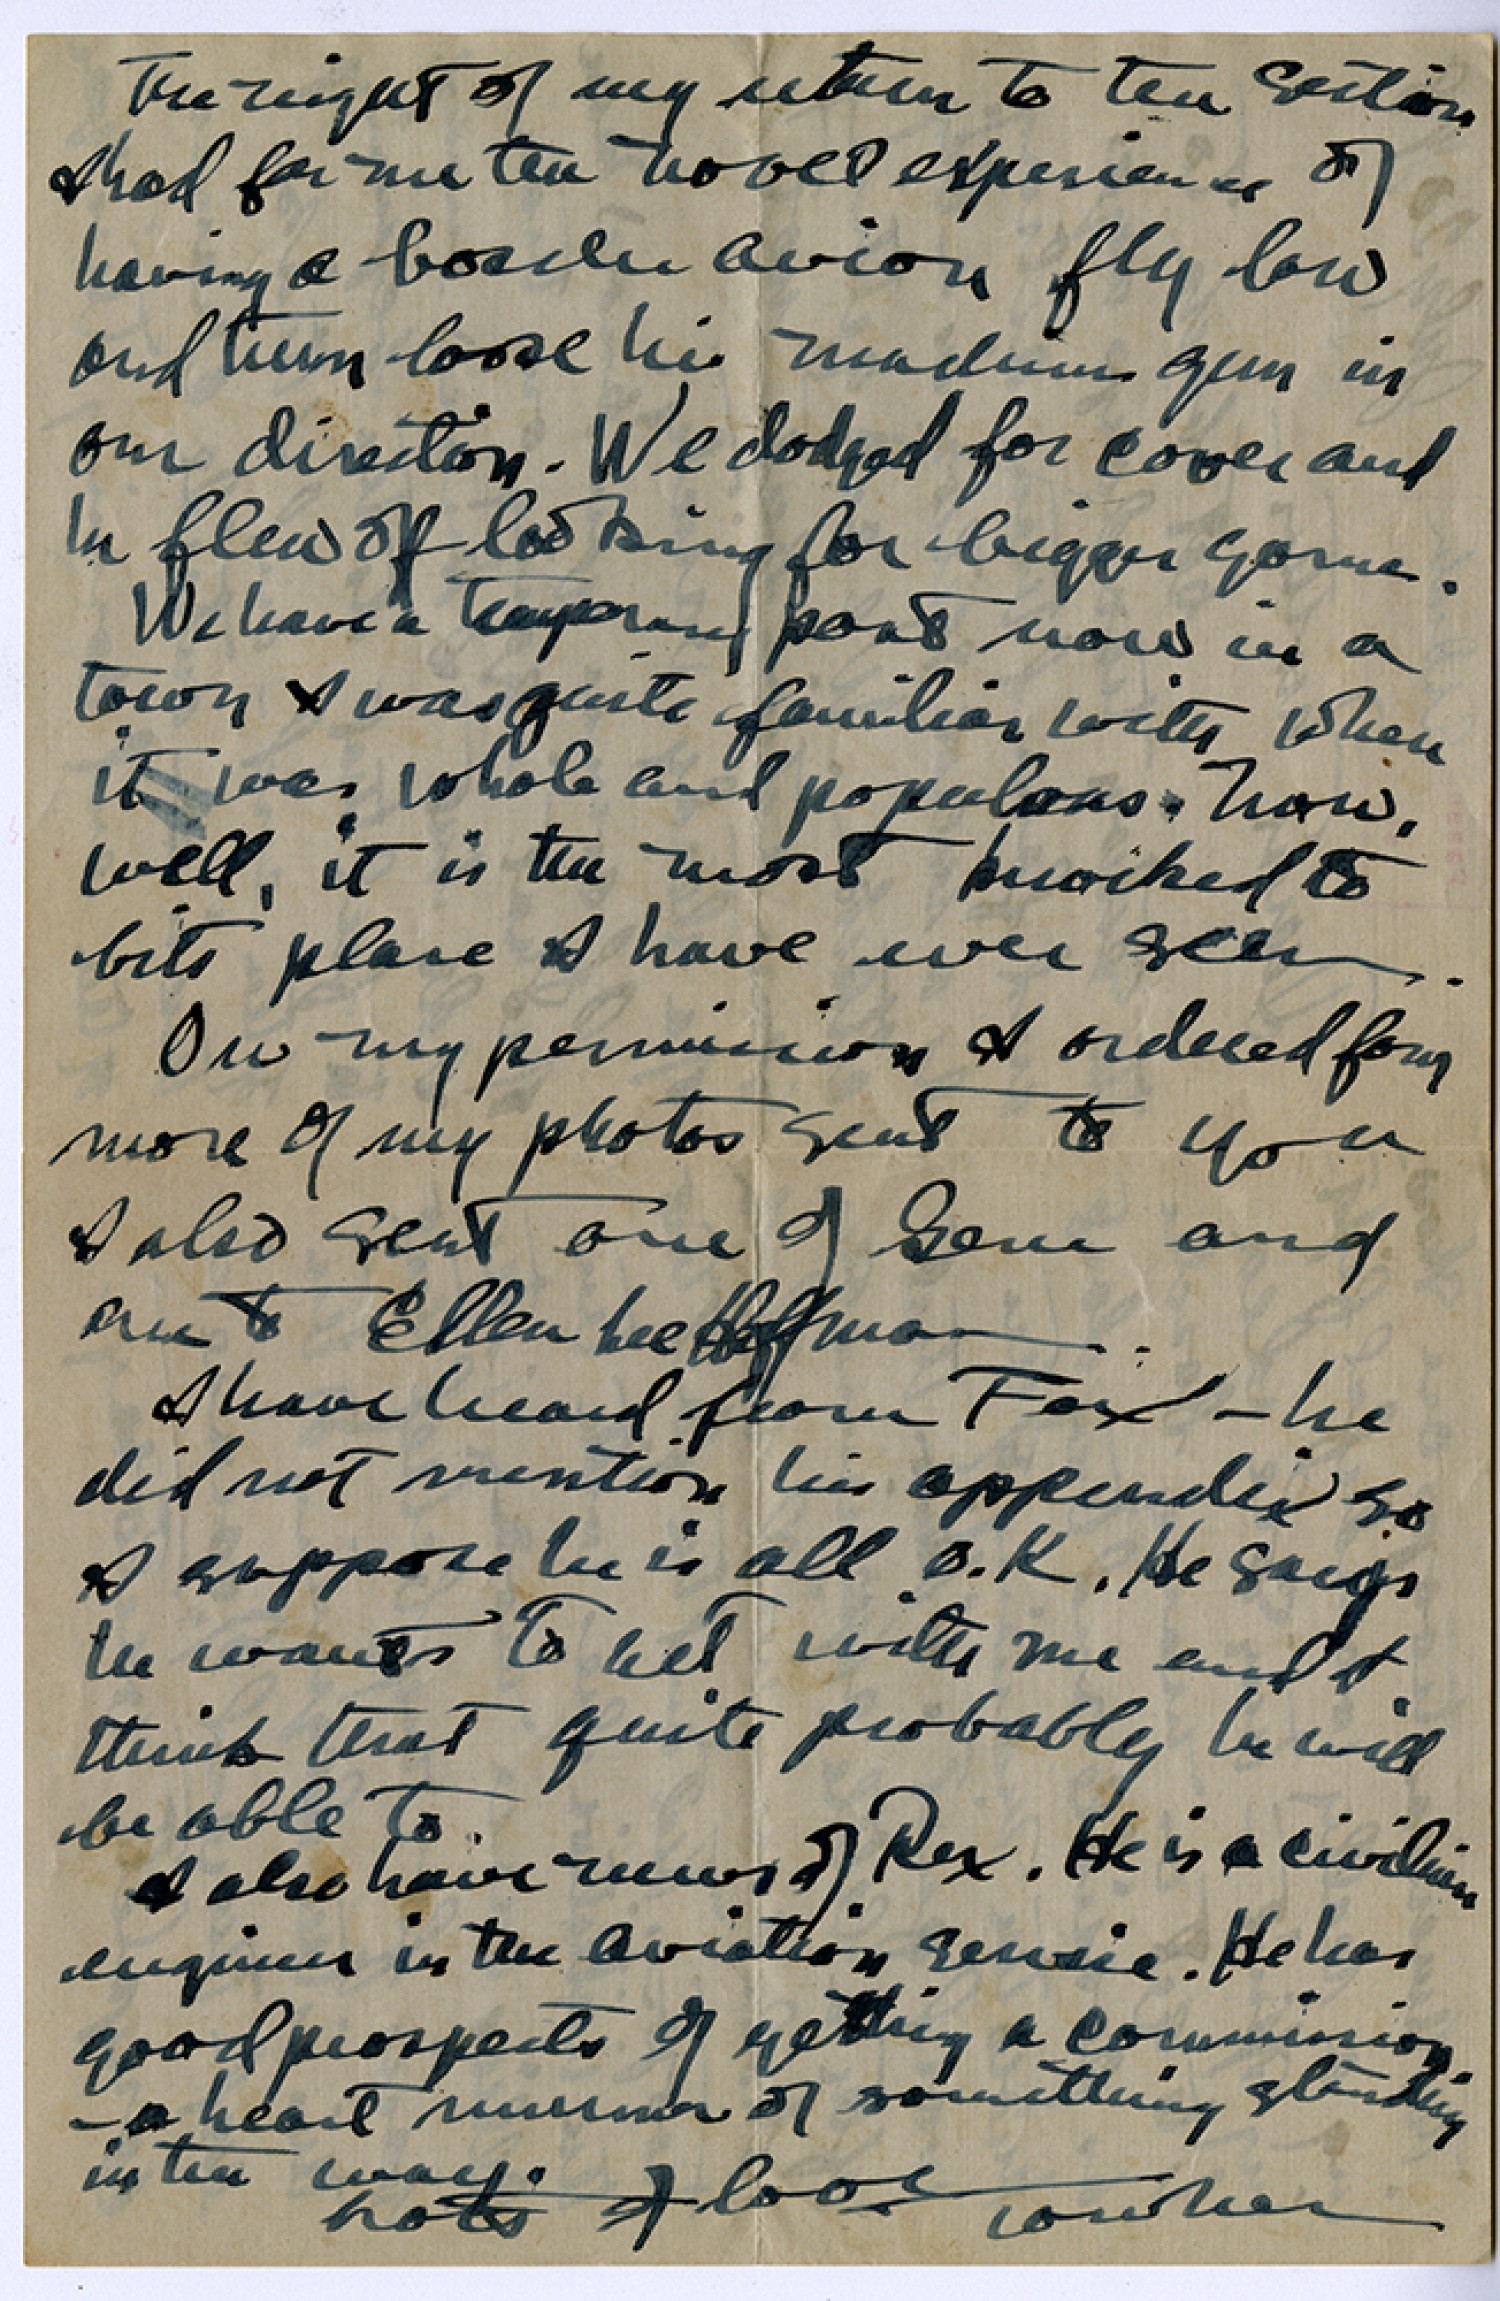 The night of my return to the Section
I had for me the novel experience of
having a bosche avion fly low
and turn loose his machine gun in
our direction. We dodged for cover and
he flew off looking for bigger game.
We have a temporary post now in a
town I was quite familiar with when
it was whole and populous. Now,
well, it is the most knocked to
bits place I have ever seen.
On my permission I ordered four
more of my photos sent to you
I also sent one of Gene and
one to Ellen Lee Hoffman.
I have heard from Fox - he
did not mention his appendix so
I suppose he is all o.K. He says
he wants to get with me and I
think that quite probably he will
be able to.
I also have news of Rex. He is a civilian
engineer in the aviation service. He has
good prospects of getting a commission
- a heart murmur or something standing
in the way.
lots of love